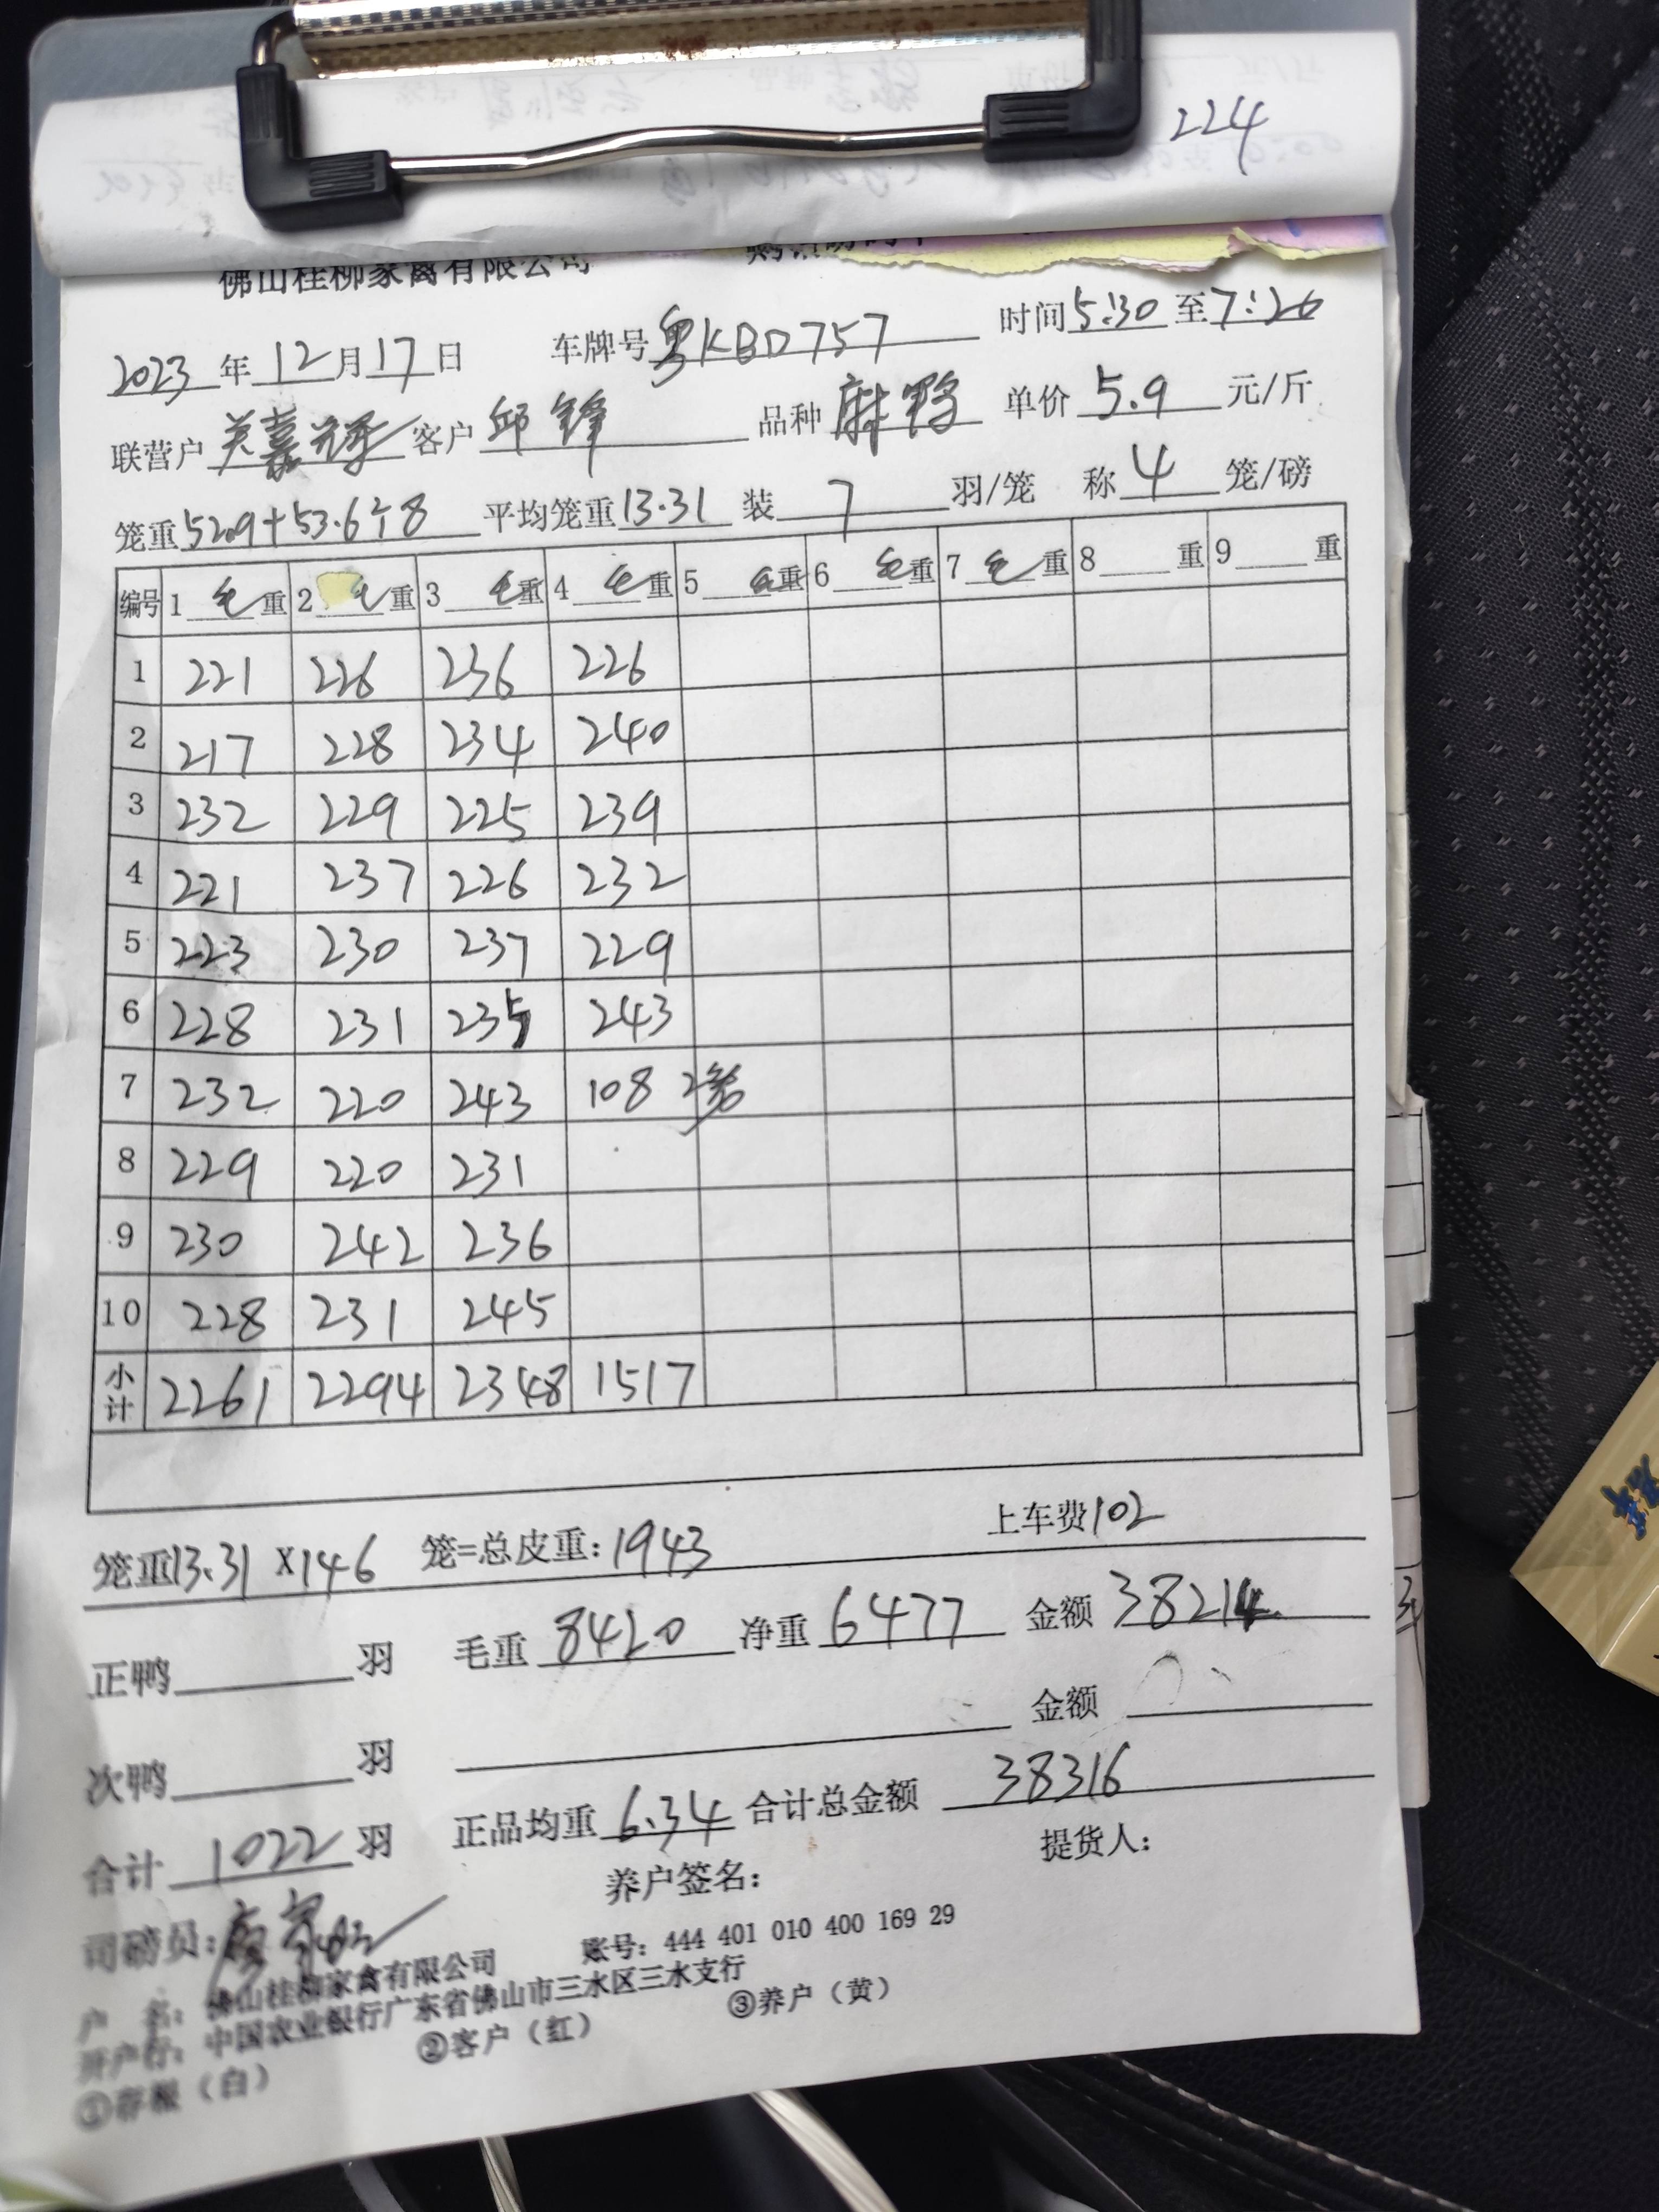 224
佛山桂柳家禽有限公司
2023年12月17日 车牌号粤KBD757 时间5:30至7:26
联营户关嘉辉客户邱锋 品种麻鸭 单价5.9元/斤
笼重52.9+53.6÷8 平均笼重13.31 装7羽/笼 称4笼/磅
编号 1毛重 2毛重 3毛重 4毛重 5毛重 6毛重 7毛重 8重 9重
1 221 226 236 226
2 217 228 234 240
3 232 229 225 239
4 221 237 226 232
5 223 230 237 229
6 228 231 235 243
7 232 220 243 108 2笼
8 229 220 231
9 230 242 236
10 228 231 245
小计 2261 2294 2348 1517
笼重13.31 X146 笼=总皮重:1943 上车费102
正鸭 羽 毛重8420净重6477 金额38214
次鸭 羽 金额
合计1022羽 正品均重6.34合计总金额38316
司磅员: 养户签名: 提货人:
户 名: 佛山桂柳家禽有限公司 账号: 444 401 010 400 169 29
开户行: 中国农业银行广东省佛山市三水区三水支行
①存根（白） ②客户（红） ③养户（黄）